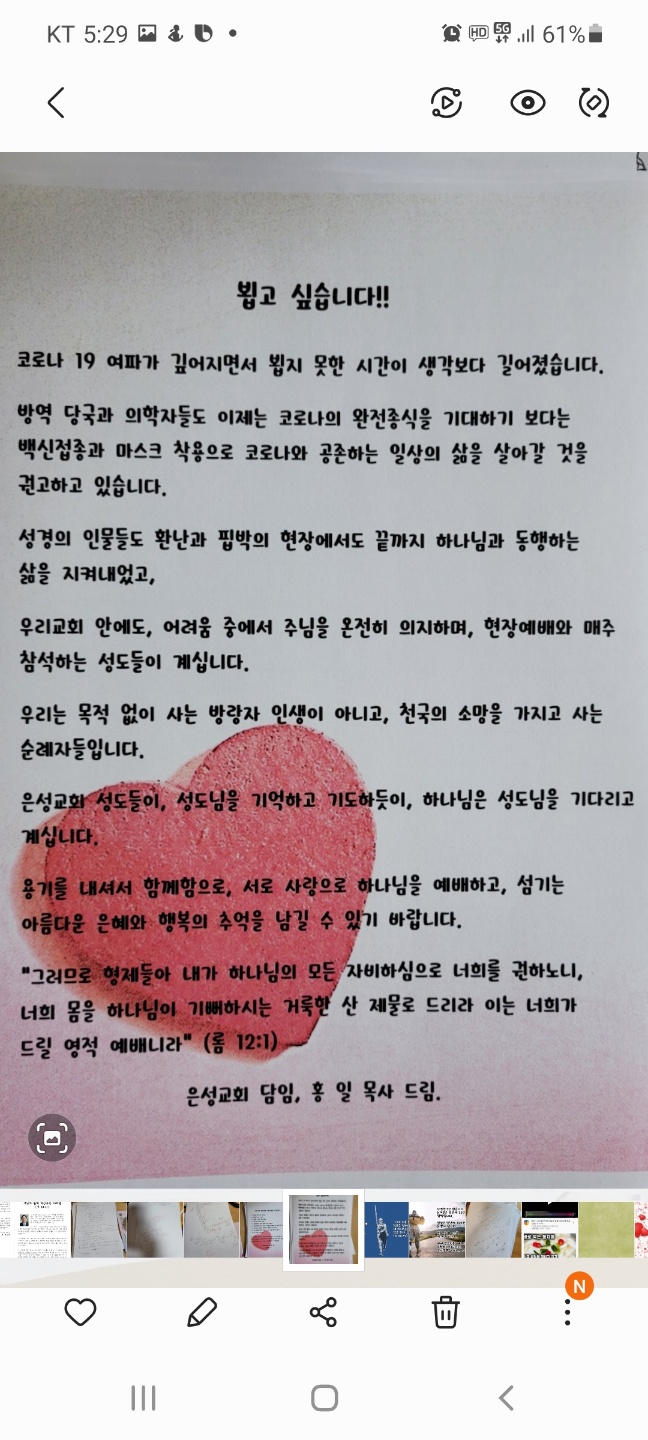 KT 5:29
HD 5G 61%
뵙고 싶습니다!!
코로나 19 여파가 깊어지면서 뵙지 못한 시간이 생각보다 길어졌습니다.
방역 당국과 의학자들도 이제는 코로나의 완전종식을 기대하기 보다는
백신접종과 마스크 착용으로 코로나와 공존하는 일상의 삶을 살아갈 것을
권고하고 있습니다.
성경의 인물들도 환난과 핍박의 현장에서도 끝까지 하나님과 동행하는
삶을 지켜내었고,
우리교회 안에도, 어려움 중에서 주님을 온전히 의지하며, 현장예배와 매주
참석하는 성도들이 계십니다.
우리는 목적 없이 사는 방랑자 인생이 아니고, 천국의 소망을 가지고 사는
순례자들입니다.
은성교회 성도들이, 성도님을 기억하고 기도하듯이, 하나님은 성도님을 기다리고
계십니다.
용기를 내셔서 함께함으로, 서로 사랑으로 하나님을 예배하고, 섬기는
아름다운 은혜와 행복의 추억을 남길 수 있기 바랍니다.
"그러므로 형제들아 내가 하나님의 모든 자비하심으로 너희를 권하노니,
너희 몸을 하나님이 기뻐하시는 거룩한 산 제물로 드리라 이는 너희가
드릴 영적 예배니라" (롬 12:1)
은성교회 담임, 홍 일 목사 드림.
N